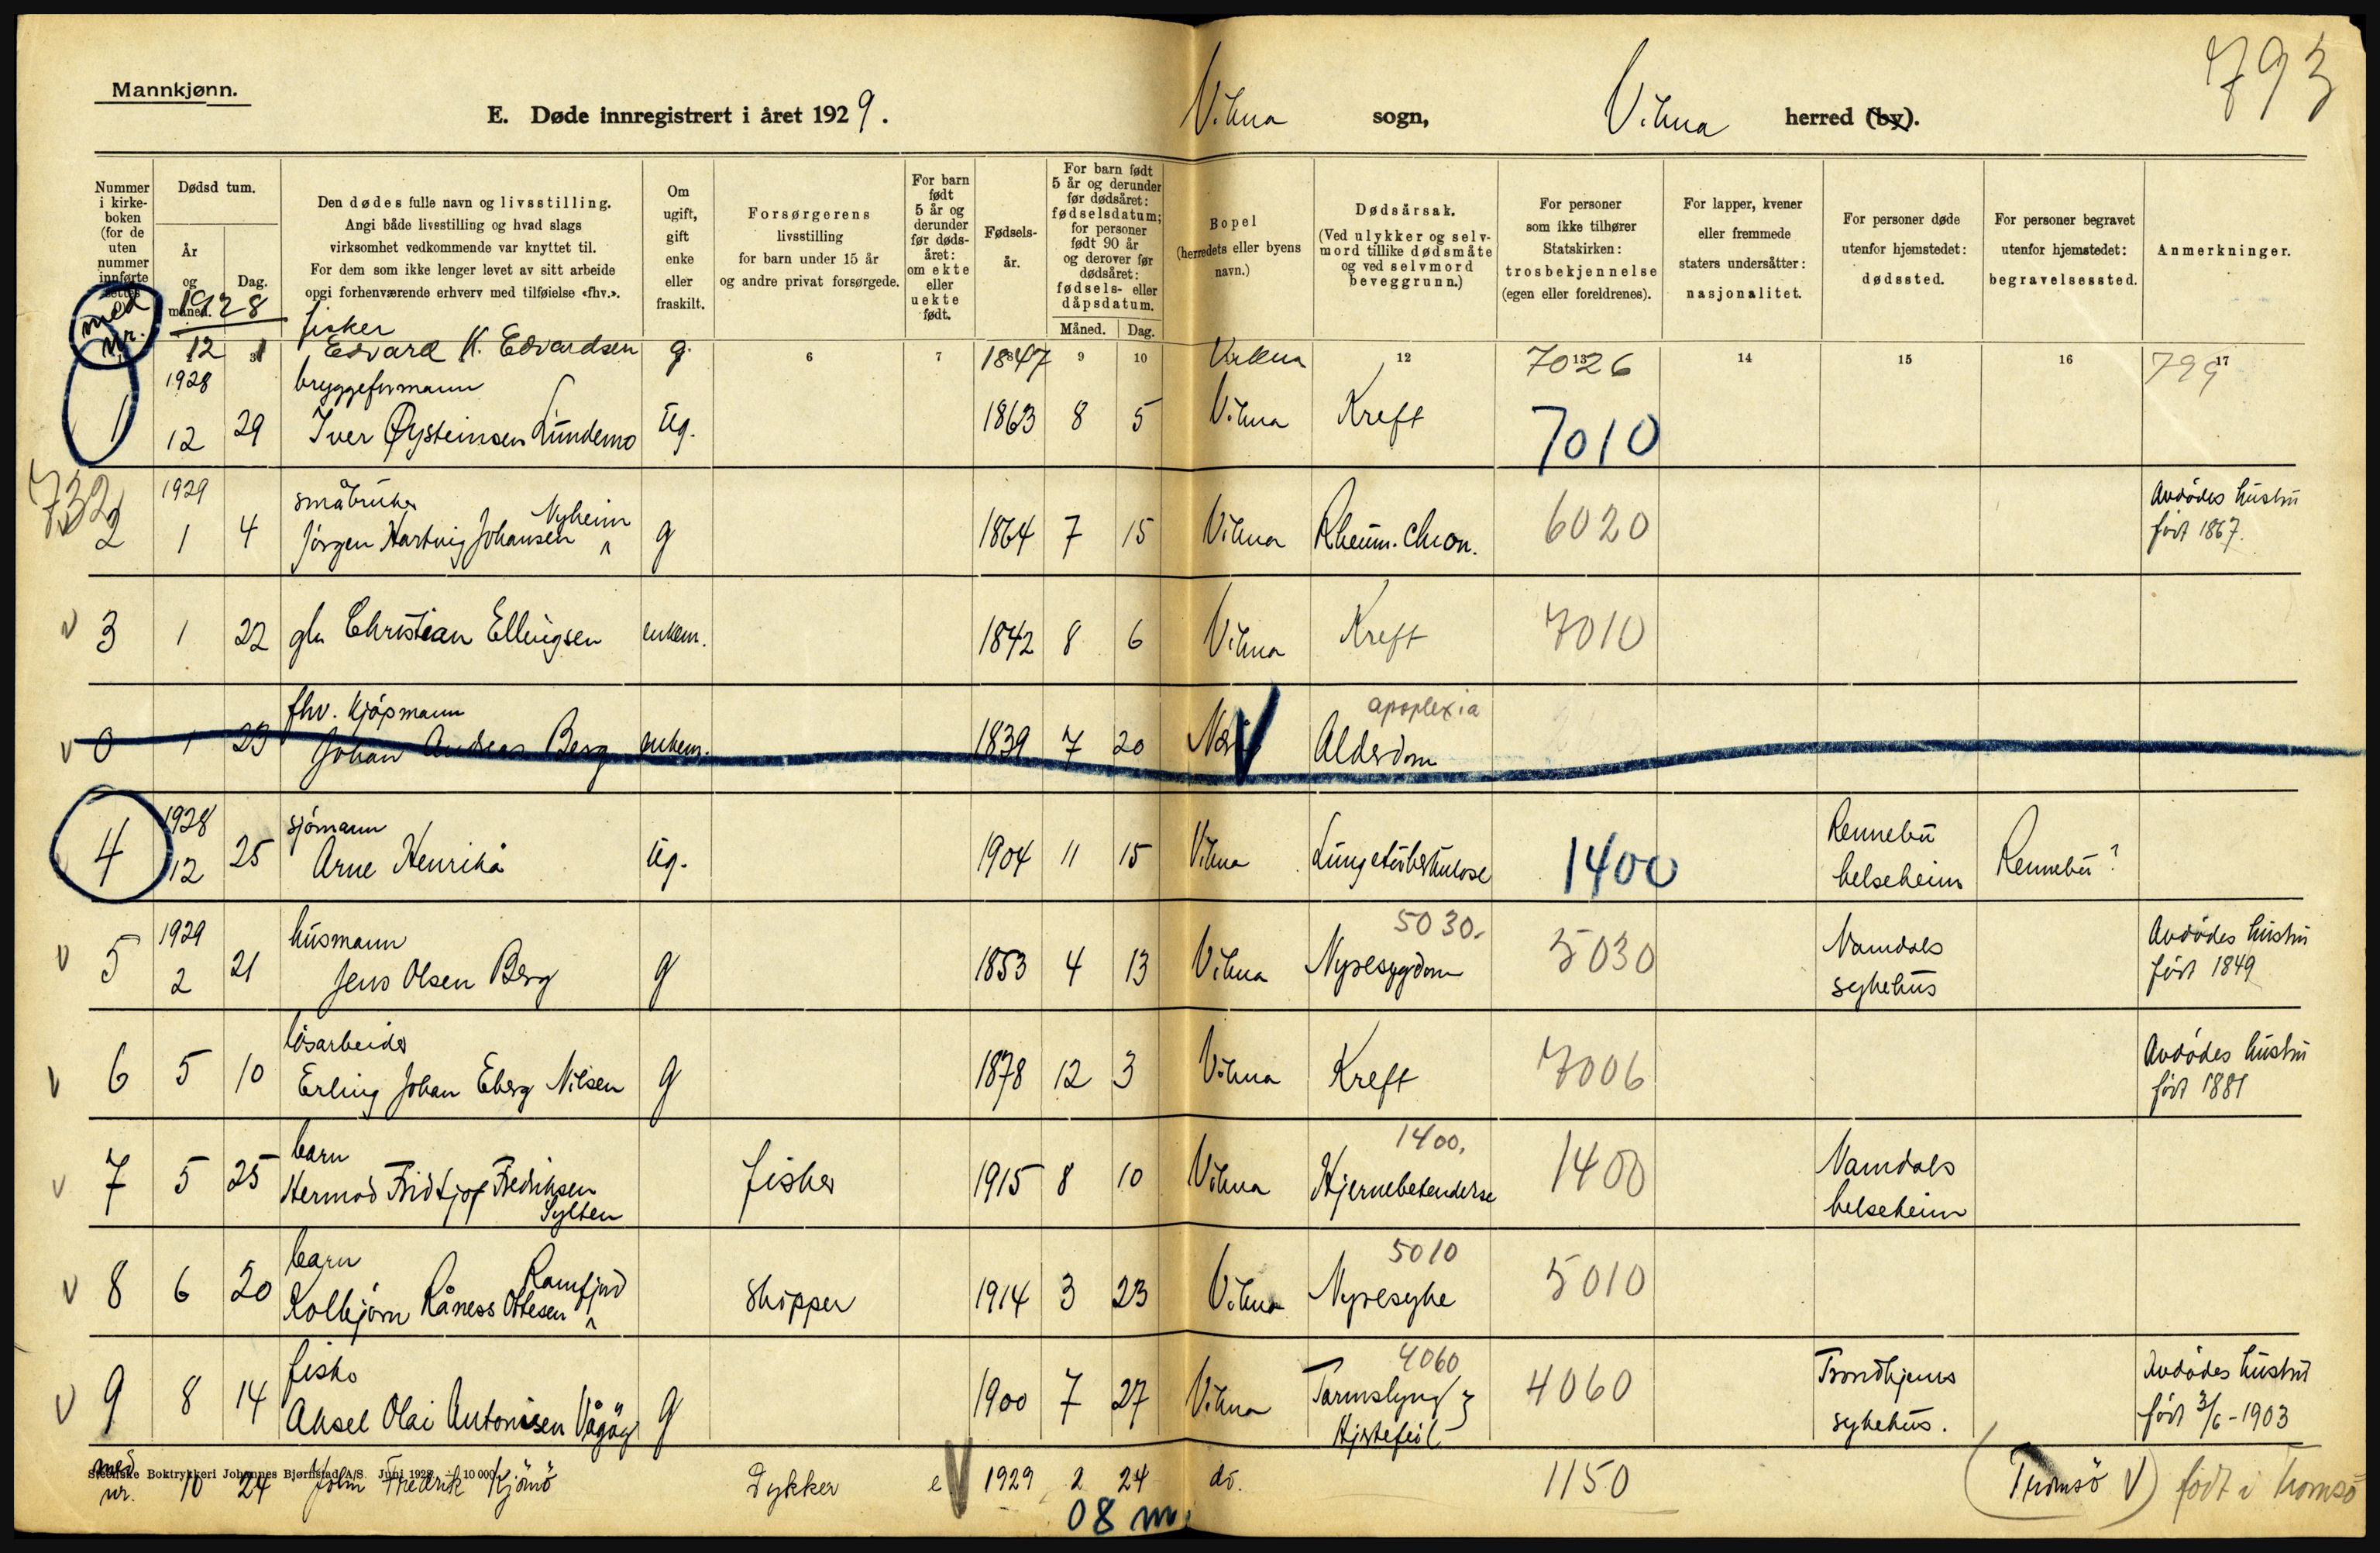 793
Mannkjønn.
E. Døde innregistrert i året 1929. Vikna sogn, Vikna herred (by).
Nummer i kirke-boken (for de uten nummer innførte settes 0).
Dødsd tum.
År og måned.
Dag.
Den dødes fulle navn og livsstilling.
Angi både livsstilling og hvad slags
virksomhet vedkommende var knyttet til.
For dem som ikke lenger levet av sitt arbeide
opgi forhenværende erhverv med tilføielse «fhv.».
Om ugift, gift enke eller fraskilt.
Forsørgerens
livsstilling
for barn under 15 år
og andre privat forsørgede.
For barn født 5 år og derunder før døds-året: om ekte eller uekte født.
Fødsels-år.
For barn født 5 år og derunder før dødsåret: fødselsdatum; for personer født 90 år og derover før dødsåret: fødsels- eller dåpsdatum.
Måned. Dag.
Bopel
(herredets eller byens navn.)
Dødsårsak.
(Ved ulykker og selv-mord tillike dødsmåte og ved selvmord beveggrunn.)
For personer
som ikke tilhører
Statskirken:
trosbekjennelse
(egen eller foreldrenes).
For lapper, kvener
eller fremmede
staters undersåtter:
nasjonalitet.
For personer døde
utenfor hjemstedet:
dødssted.
For personer begravet
utenfor hjemstedet:
begravelsessted.
Anmerkninger.
6 7 9 10 12 13 14 15 16 17
med nr. 1928 fisker
12 1 Edvard K. Edvardsen g. 1847 Vikna 7026 799
1928 bryggeformann
1 12 29 Iver Øysteinsen Lundemo ug. 1863 8 5 Vikna Kreft 7010
732
1929 småbruker Nyheim Avdødes hustru
2 1 4 Jørgen Hartvig Johansen g 1864 7 15 Vikna Rheum. chron. 6020 født 1867.
3 1 22 Christian Ellingsen enkem. 1842 8 6 Vikna Kreft 7010
fhv. kjøpmann apoplexia
0 1 23 Johan Andreas Berg enkem. 1839 7 20 Alderdom
1928 sjømann Rennebu
4 12 25 Arne Henrikå ug. 1904 11 15 Vikna Lungetuberkulose 1400 helseheim Rennebu?
1929 husmann 5030. Namdals Avdødes hustru
5 2 21 Jens Olsen Berg g 1853 4 13 Vikna Nyresygdom 5030 sykehus født 1849
løsarbeider Avdødes hustru
6 5 10 Erling Johan Eberg Nilsen g 1878 12 3 Vikna Kreft 7006 født 1881
barn 1400. Namdals
7 5 25 Hermod Fridtjof Fredriksen fisker 1915 8 10 Vikna Hjernebetendelse 1400 helseheim
Sylten
barn Ramfjord 5010
8 6 20 Kolbjørn Råness Ottesen skipper 1914 3 23 Vikna Nyresyke 5010
fisker 4060 Trondhjems Avdødes hustru
9 8 14 Aksel Olai Antonisen Vågøy g 1900 7 27 Vikna Tarmslyng 4060 sykehus. født 3/6-1903
Hjertefeil
Steenske Boktrykkeri Johannes Bjørnstad A/S. Juni 1928 10 000
med nr. 10 24 John Fredrik Kjönö Dykker e 1929 2 24 do. 1150 (Tromsö V) født i Tromsö
08 m